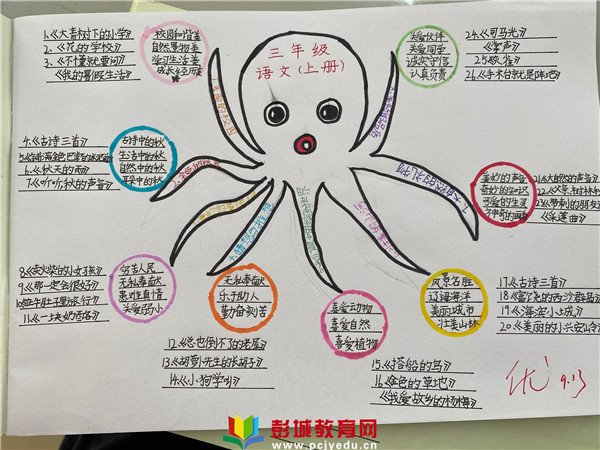 三年级
语文(上册)
1.《大青树下的小学》
2.《花的学校》
3、《不懂就要问》
《我的暑假生活》
校园和背景
自然景物美
学习生活美
4.《古诗三首》
6.《秋天的雨》
7.《听听,秋的声音》
古诗中的秋
生活中的秋
自然中的秋
8.《卖火柴的小女孩》
9.《那一定会很好》
10.《在牛肚子里旅行》
11.《一块奶酪》
穷苦人民
无私奉献
患难真情
关爱弱小
无私奉献
乐于助人
勤奋刻苦
12.《总也倒不了的老屋》
13.《胡萝卜先生的长胡子》
14.《小狗学叫》
喜爱动物
喜爱自然
喜爱植物
15.《搭船的鸟》
16.《金色的草地》
《我爱故乡的杨梅》
风景名胜
辽阔海洋
美丽城市
壮美山林
17.《古诗三首》
18.《富饶的西沙群岛》
19.《海滨小城》
20.《美丽的小兴安岭》
美妙的声音
可爱的生灵
21.《大自然的声音》
23.《带刺的朋友》
《采莲曲》
关爱伙伴
关爱同学
诚实守信
认真负责
24.《司马光》
《掌声》
25.灰雀
26.《手术台就是阵地》
优
9.13
彭城教育网
www.pcjyedu.cn